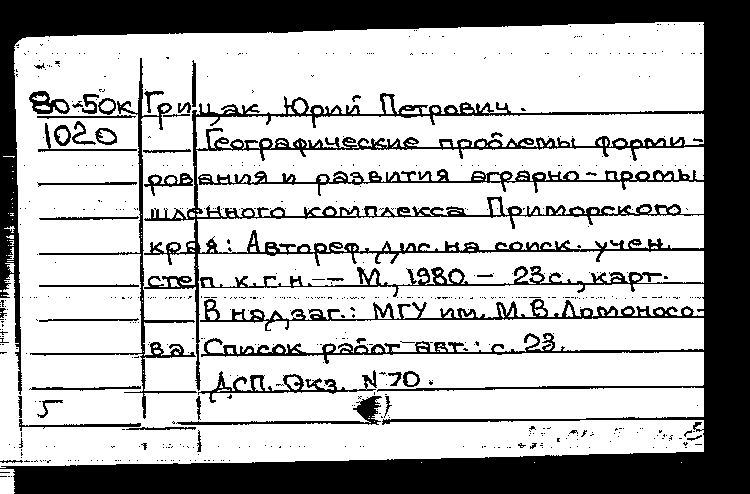 80-50к Грицак, Юрий Петрович.
1020 Географические проблемы форми-
рования и развития аграрно-промы
шленного комплекса Приморского
края: Автореф. дис. на соиск. учен.
степ. к.г.н. — М., 1980. — 23 с., карт.
В надзаг.: МГУ им. М.В.Ломоносо-
ва. Список работ авт.: с. 23.
ДСП. Экз. N 70.
5